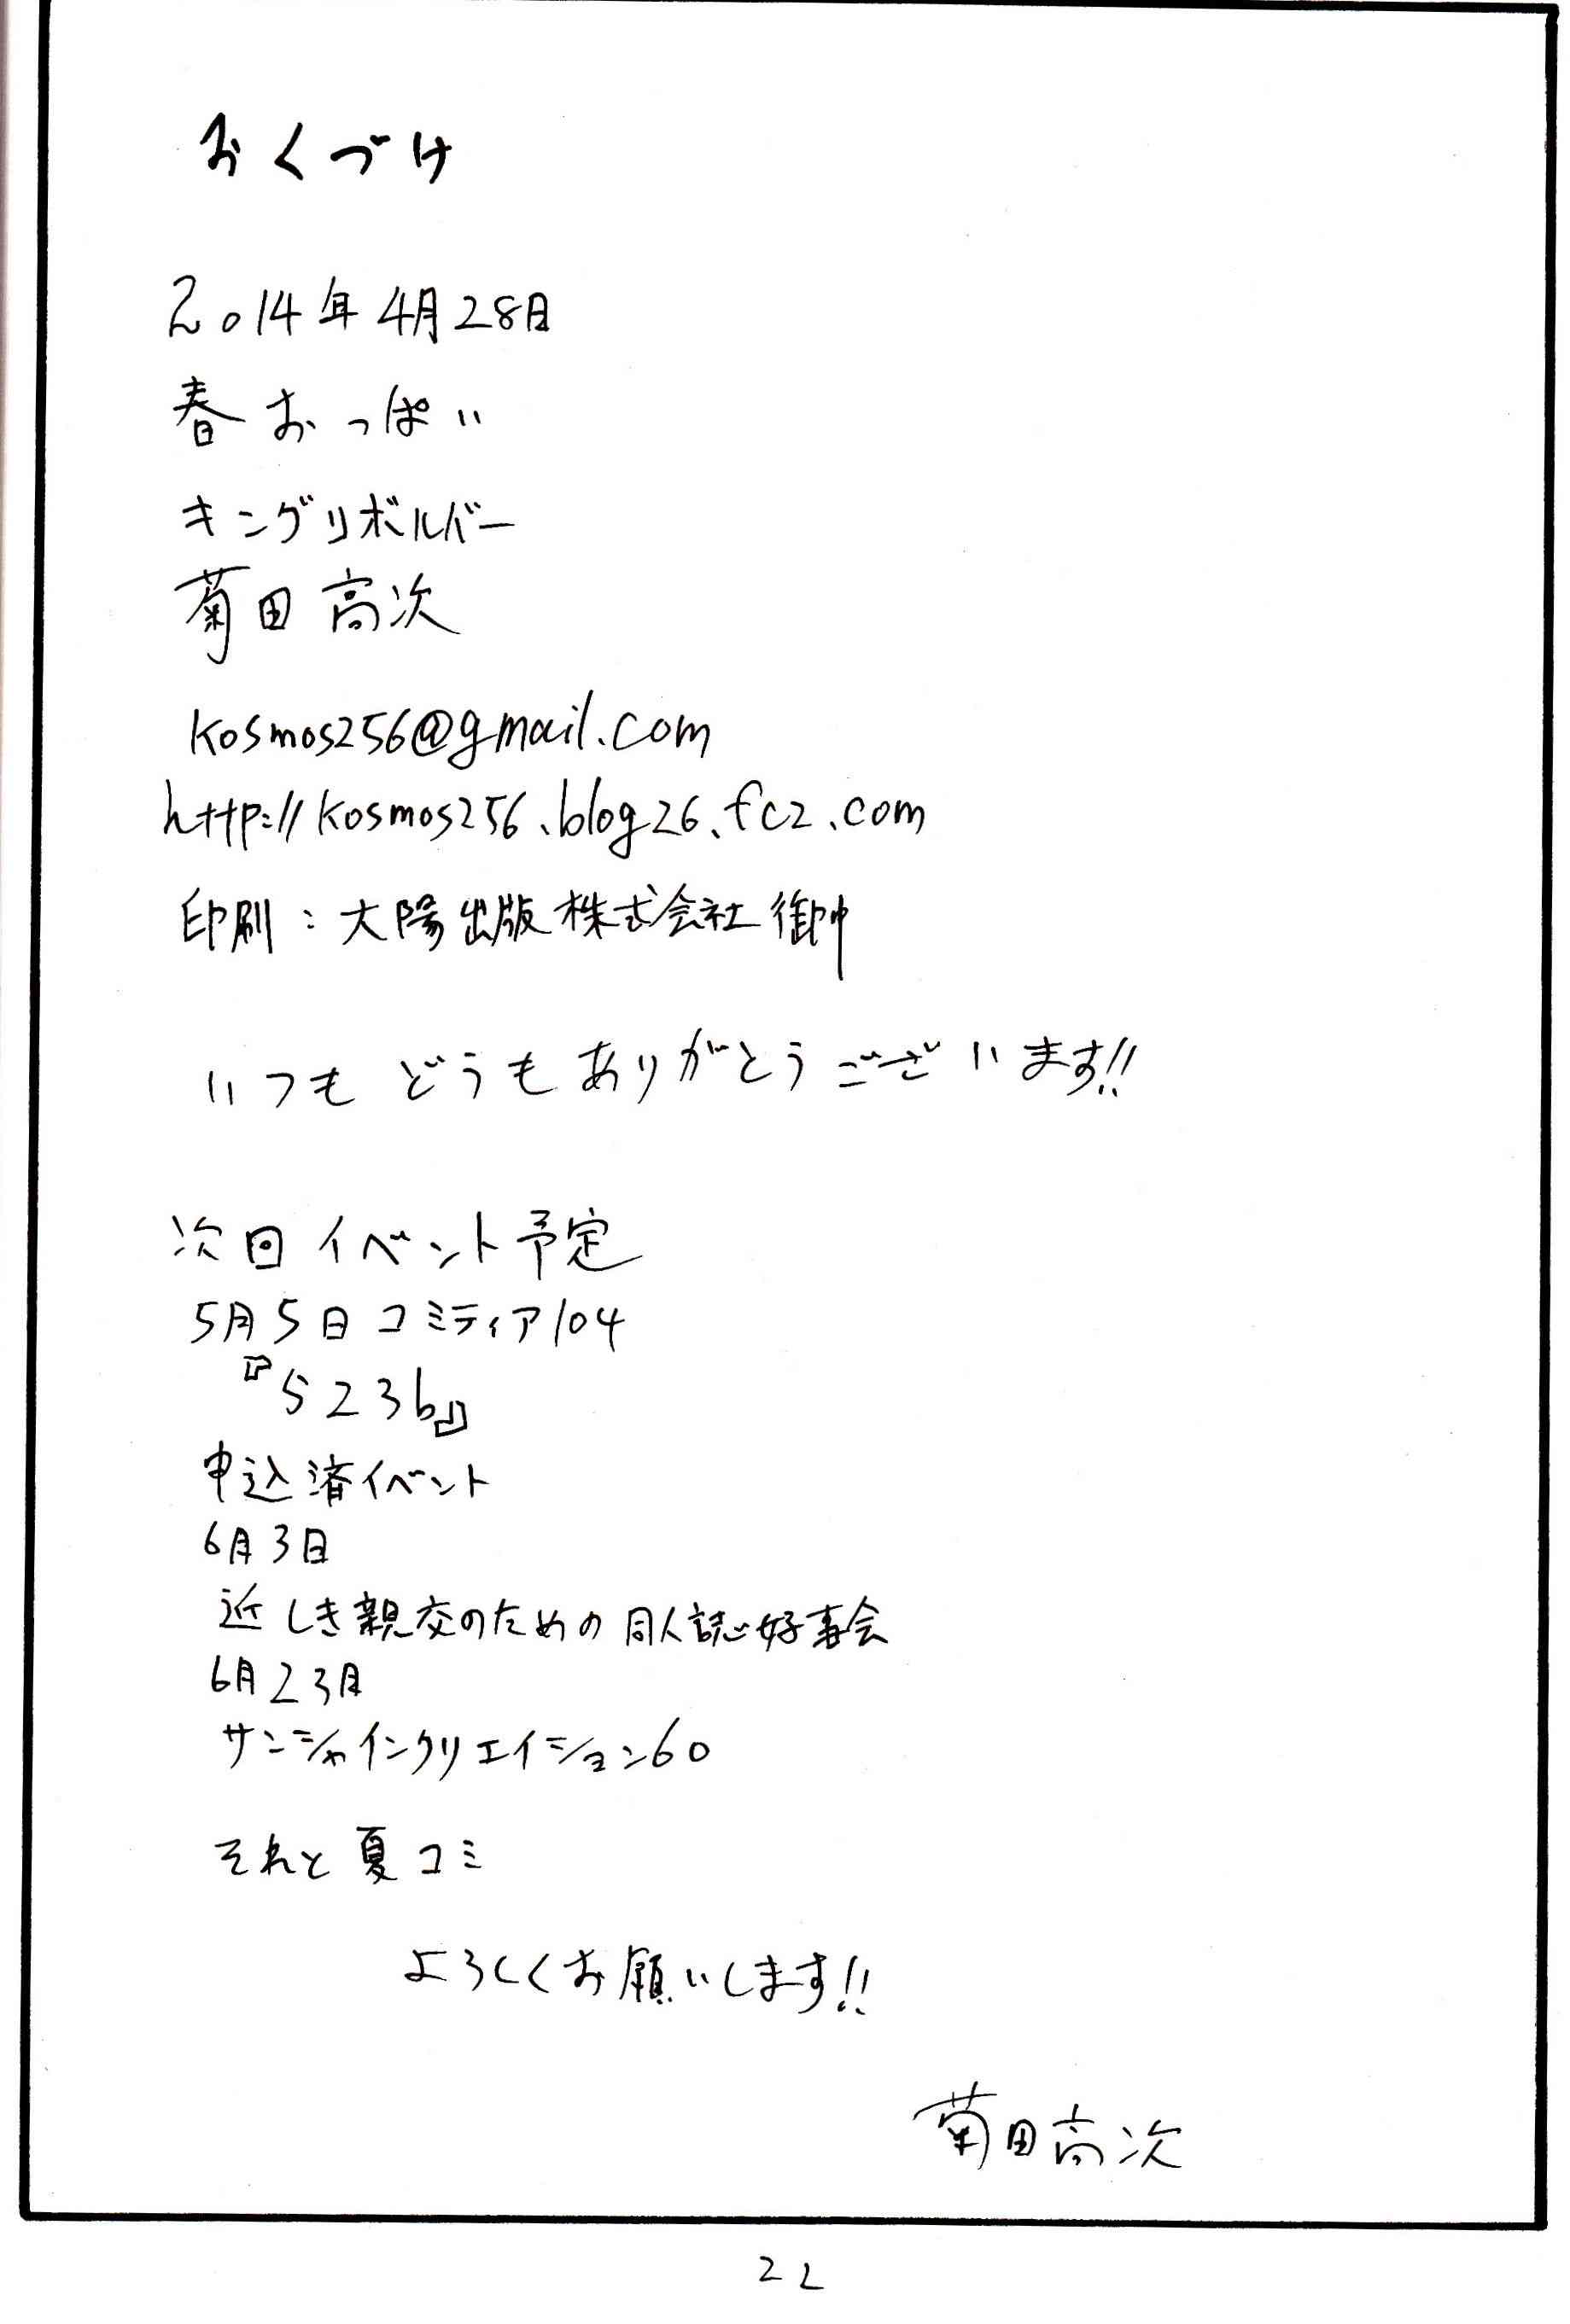 おくづけ
2014年4月28日
春おっぱい
キングリボルバー
菊田高次
kosmos256@gmail.com
http://kosmos256.blog26.fc2.com
印刷：大陽出版株式会社御中
いつもどうもありがとうございます!!
次回イベント予定
5月5日コミティア104
『S23b』
申込済イベント
6月3日
近しき親交のための同人誌好事会
6月23日
サンシャインクリエイション60
それと夏コミ
よろしくお願いします!!
菊田高次
22